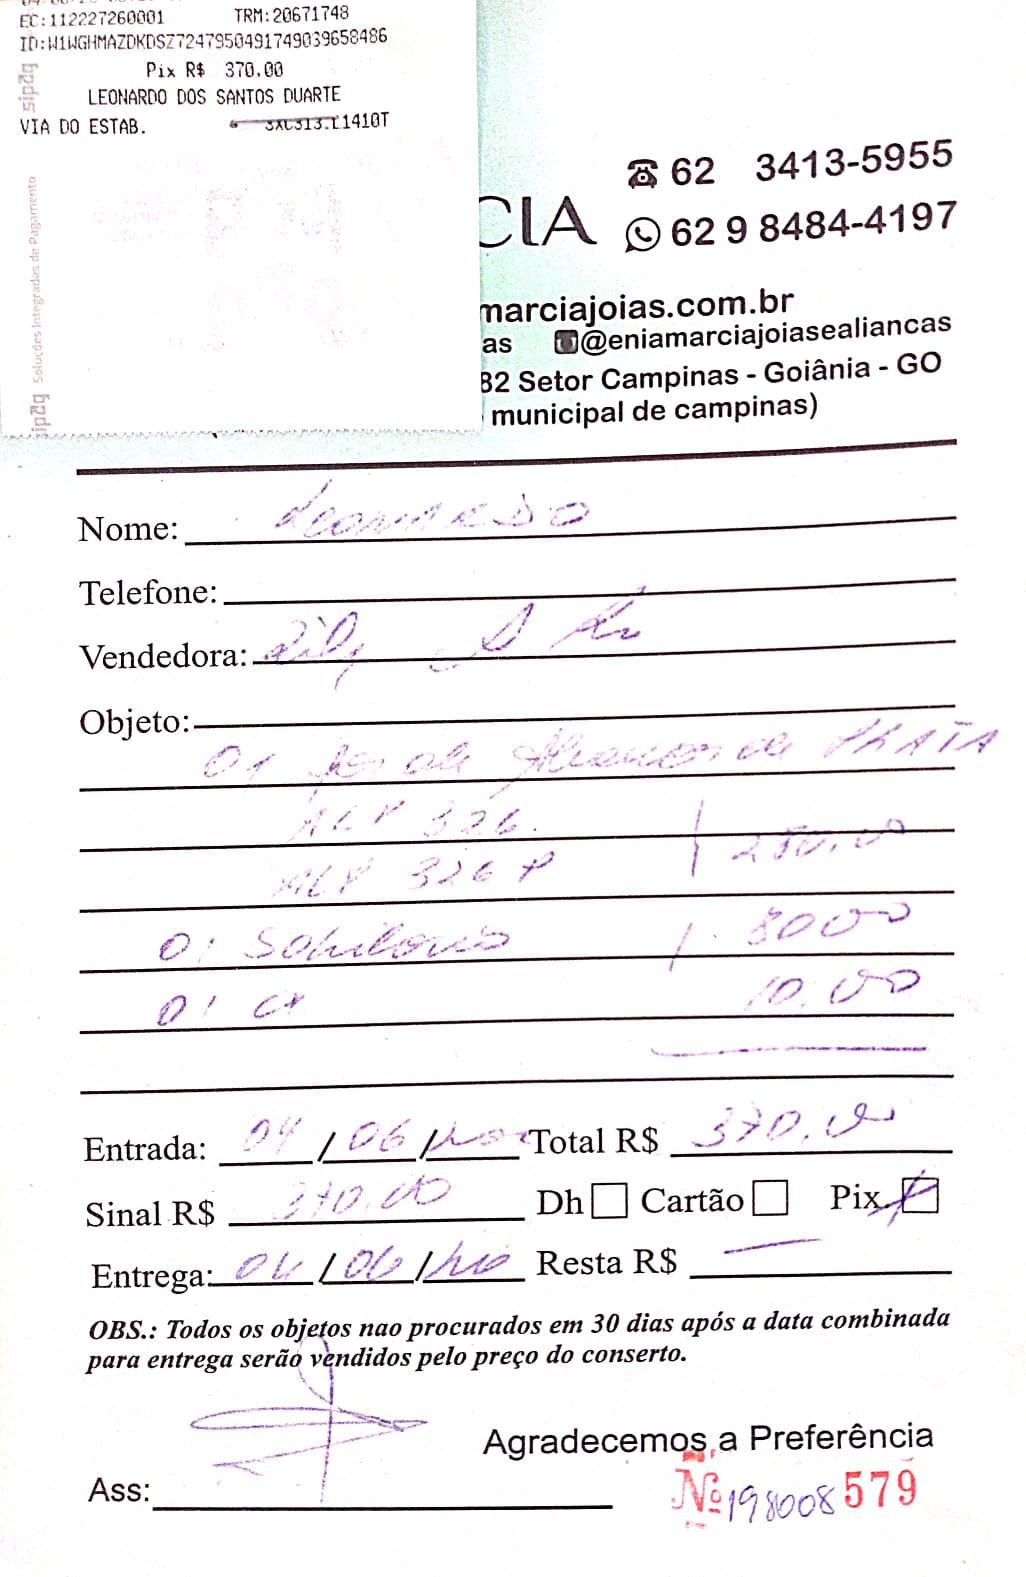 EC:112227260001 TRM:20671748
ID:W1WGHMAZDKDSZ7247950491749039658486
Pix R$ 370.00
LEONARDO DOS SANTOS DUARTE
VIA DO ESTAB.
sipag Soluções Integradas de Pagamento sipag
62 3413-5955
CIA 62 9 8484-4197
marciajoias.com.br
as @eniamarciajoiasealiancas
82 Setor Campinas - Goiânia - GO
municipal de campinas)
Nome: Leonardo
Telefone:
Vendedora:
Objeto:
01 de PRATA
326
326 P 280,00
01 Solitario 80 00
01 cx 10,00
Entrada: 04/06/ Total R$ 370,00
Sinal R$ 370,00 Dh Cartão Pix
Entrega: 04/06/ Resta R$
OBS.: Todos os objetos nao procurados em 30 dias após a data combinada
para entrega serão vendidos pelo preço do conserto.
Agradecemos a Preferência
Ass:
Nº 198008 579